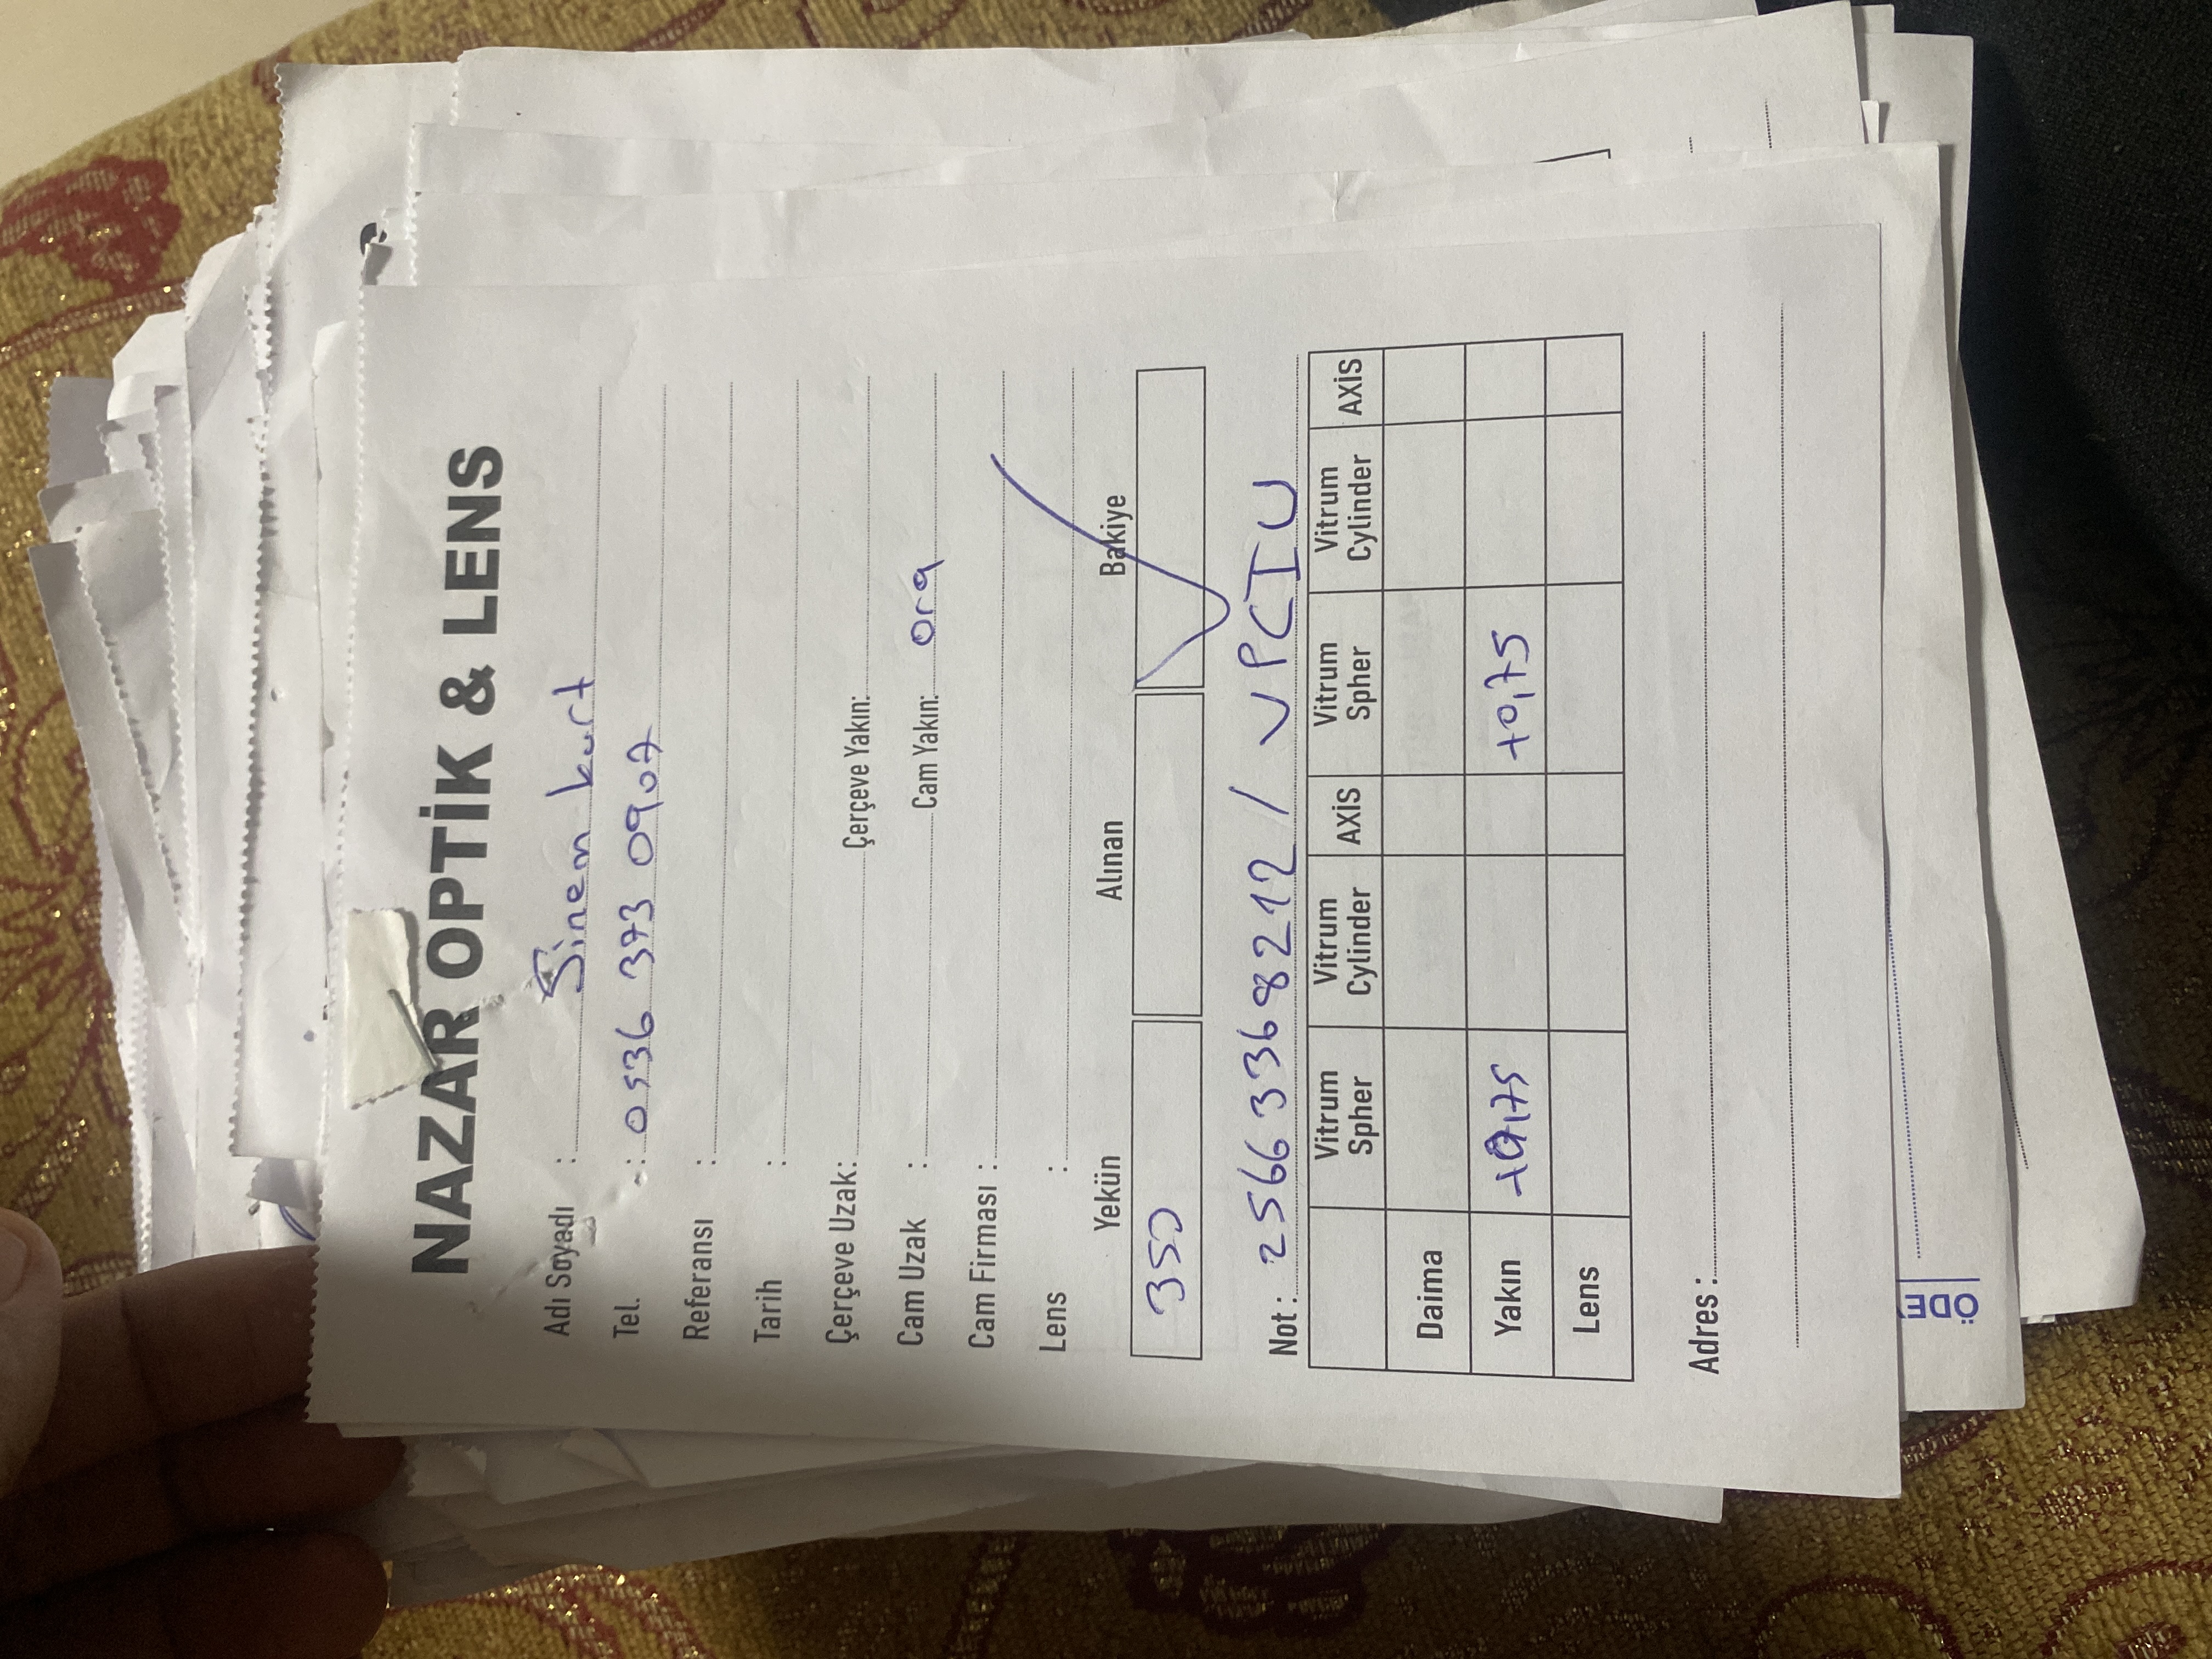 NAZAR OPTİK & LENS
Adı Soyadı : Sinem kurt
Tel. : 0536 373 0907
Referansı :
Tarih :
Çerçeve Uzak: Çerçeve Yakın:
Cam Uzak : Cam Yakın: org
Cam Firması :
Lens :
Yekün Alınan Bakiye
350
Not : 25663368212 / VPCIU
Vitrum Spher Vitrum Cylinder AXİS Vitrum Spher Vitrum Cylinder AXİS
Daima
Yakın +0,75 +0,75
Lens
Adres :
ÖDE